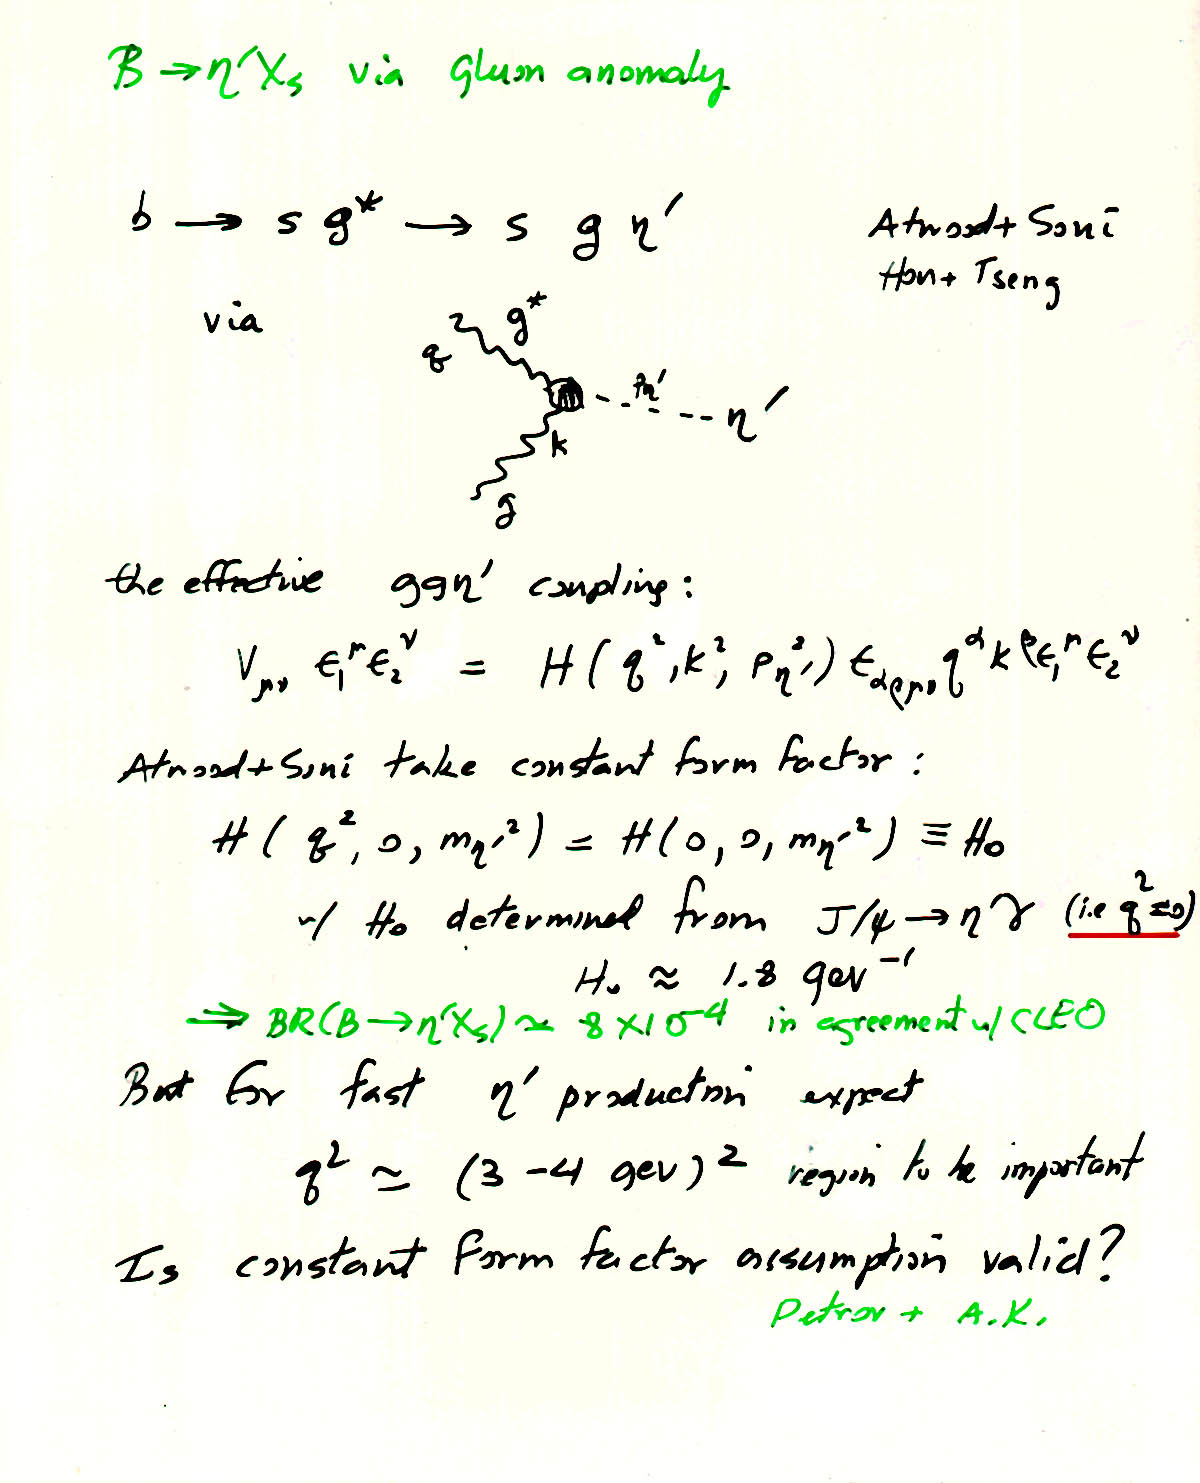 B → η′Xs via Gluon anomaly
b → s g* → s g η′
Atwood + Soni
Hou + Tseng
via
g*
q
Pη′
η′
k
g
the effective ggη′ coupling:
Vμν ε₁^μ ε₂^ν = H(q², k², Pη′²) ε_αβμν q^α k^β ε₁^μ ε₂^ν
Atwood + Soni take constant form factor:
H(q², 0, mη′²) = H(0, 0, mη′²) ≡ H₀
w/ H₀ determined from J/ψ → ηγ (i.e q²=0)
H₀ ≈ 1.8 gev⁻¹
⇒ BR(B→η′Xs) ≃ 8×10⁻⁴ in agreement w/ CLEO
But for fast η′ production expect
q² ≃ (3-4 gev)² region to be important
Is constant form factor assumption valid?
Petrov + A.K.